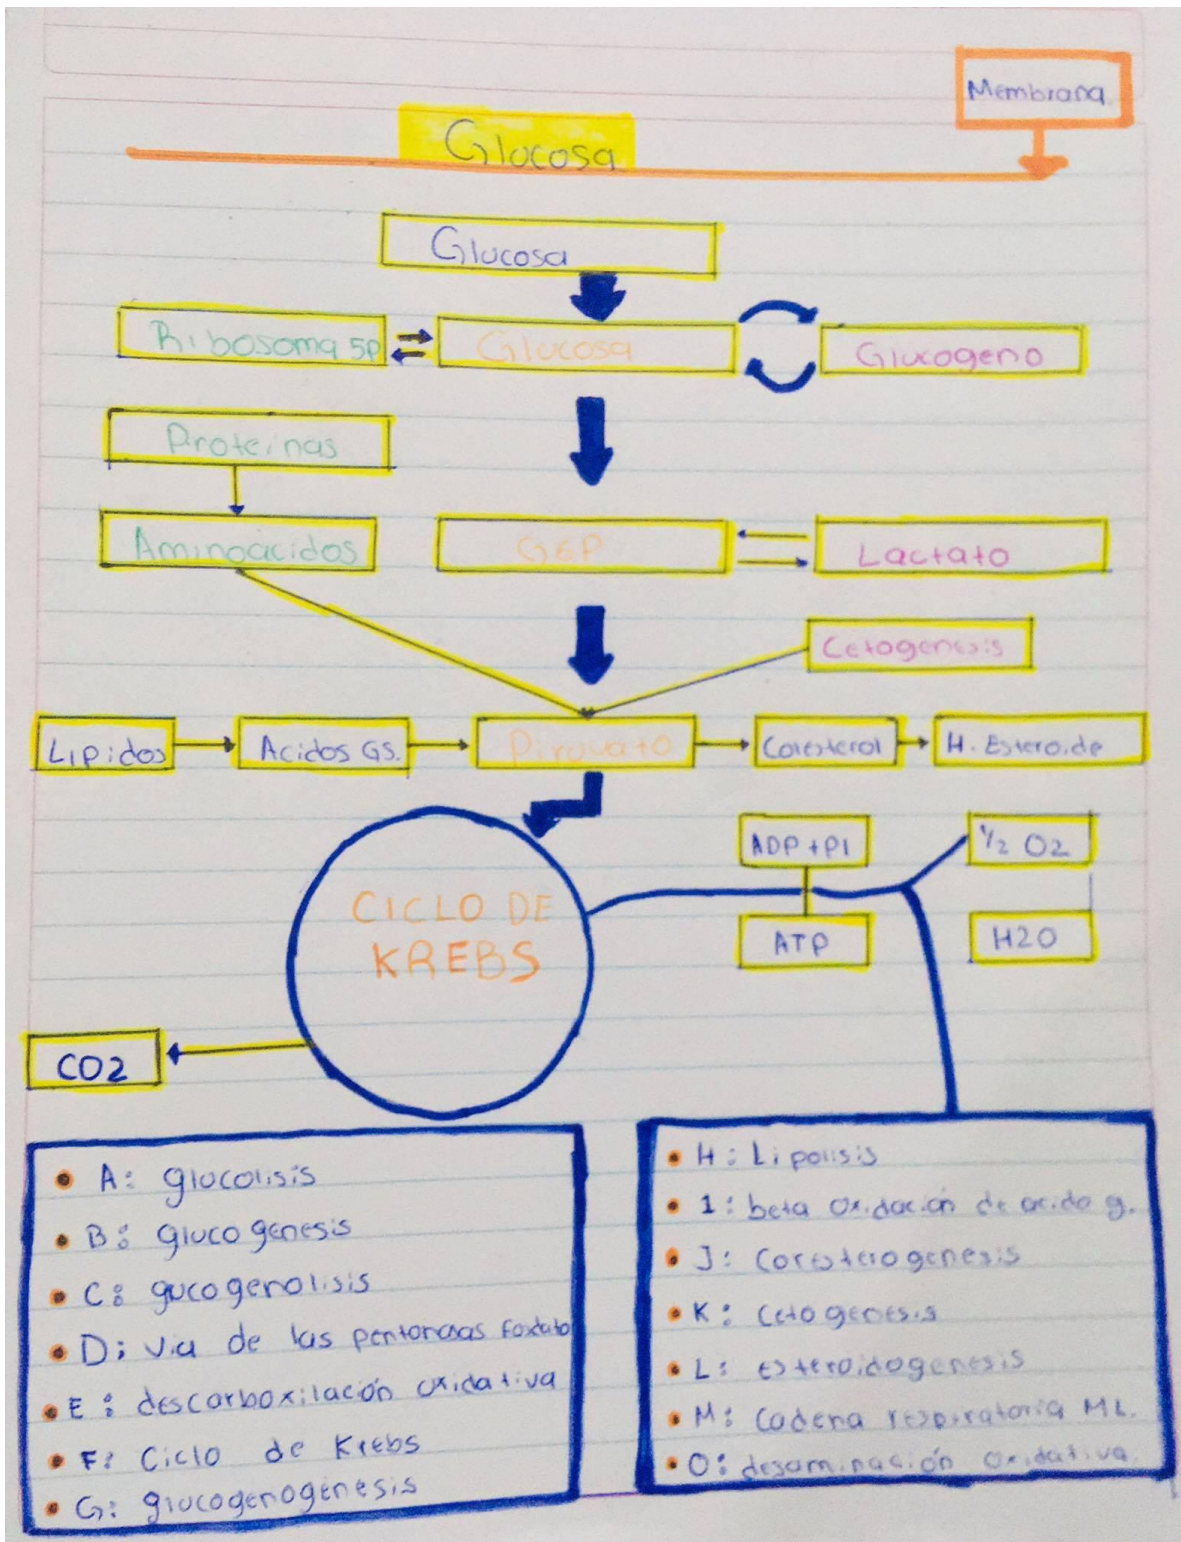 Membrana
Glucosa
Glucosa
Ribosoma 5P
Glucosa
Glucogeno
Proteinas
Aminoácidos
G6P
Lactato
Cetogenesis
Lipidos
Acidos GS.
Piruvato
Coresterol
H. Esteroide
ADP + PI
1/2 O2
CICLO DE
KREBS
ATP
H2O
CO2
• A: glucolisis
• B: glucogenesis
• C: gucogenolisis
• D: via de las pentonsas foxfato
• E: descarboxilación oxidativa
• F: Ciclo de Krebs
• G: glucogenogenesis
• H: Lipolisis
• 1: beta oxidación de acido g.
• J: Coresterogenesis
• K: Cetogenesis
• L: esteroidogenesis
• M: Cadena respiratoria ML.
• O: desaminación oxidativa.